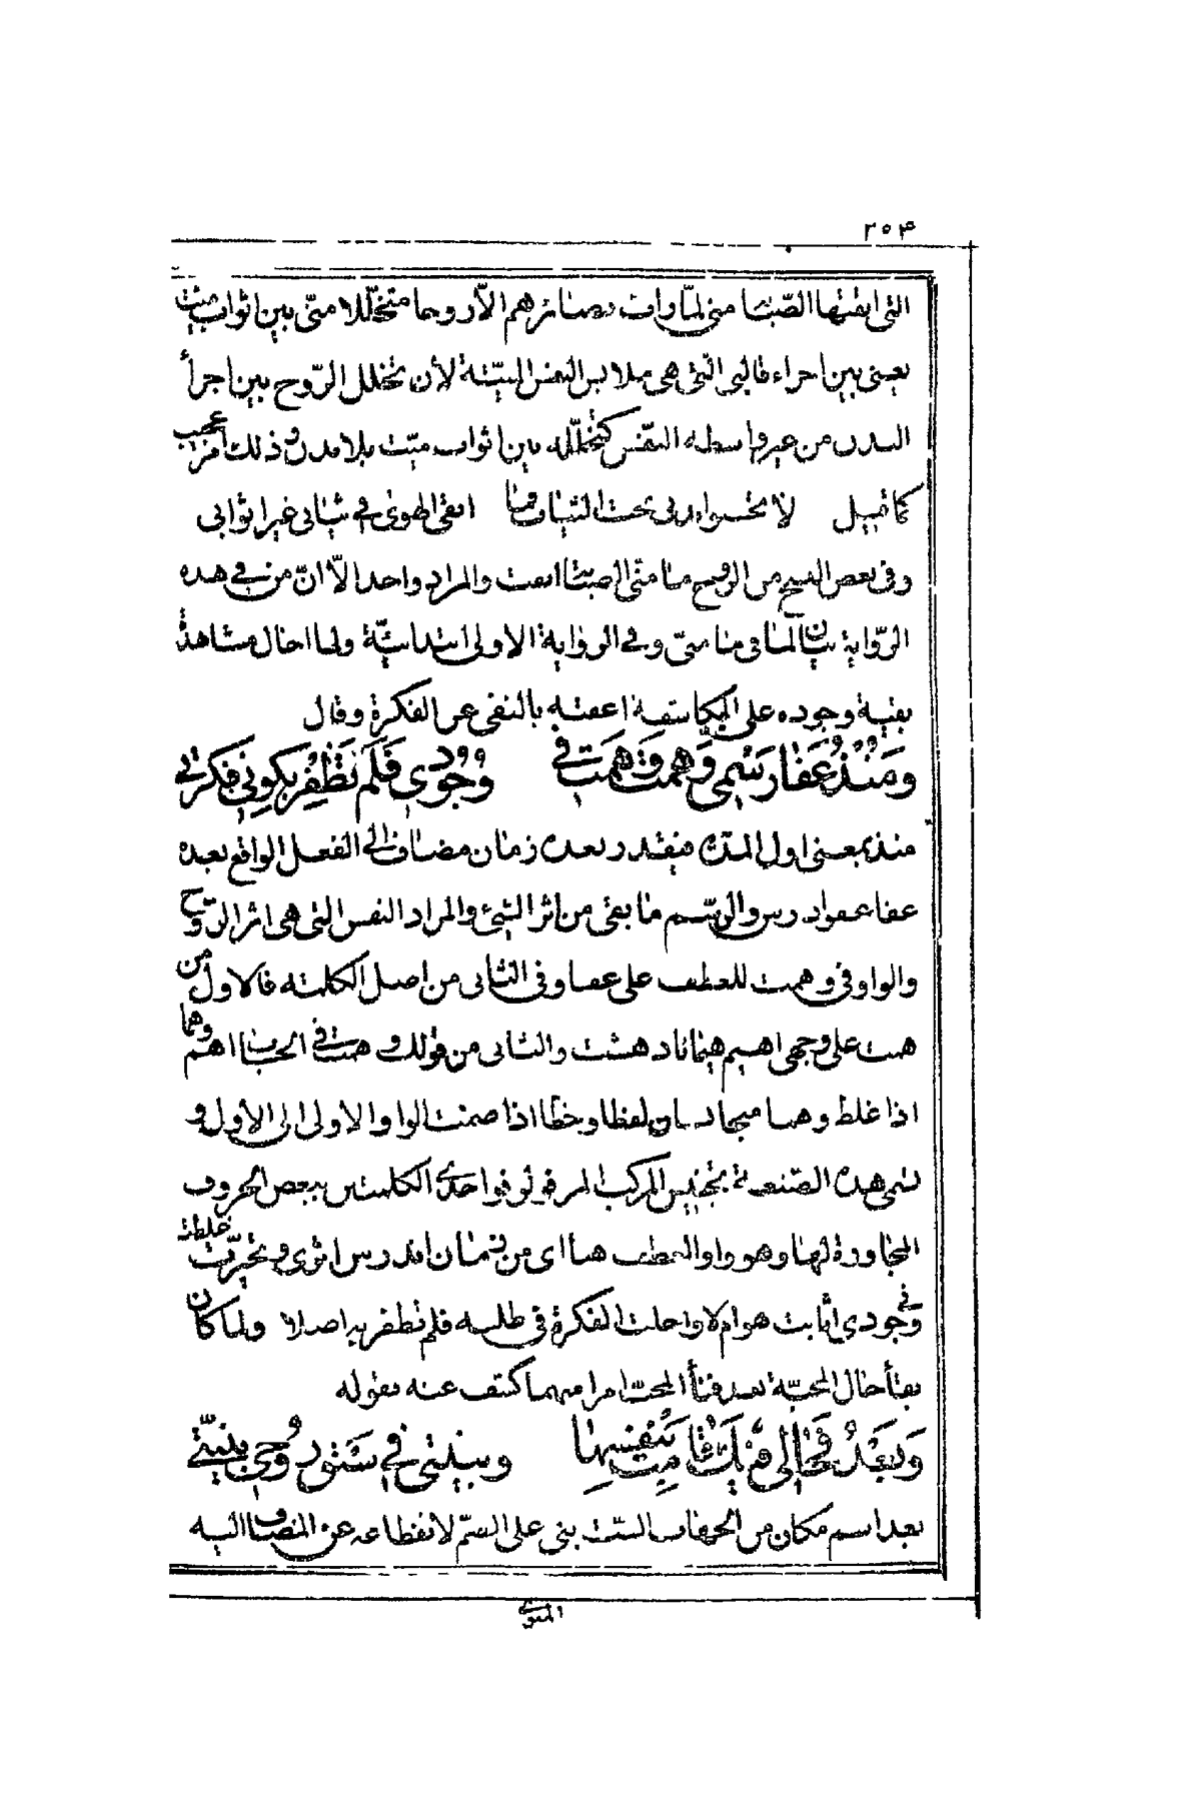 ٢٥٤
التى ابقتها الصّبا منى لما وافت بصائرهم الّا روحا متخلّلا منّى بين اثواب ميّت
يعنى بين اجزاء قالبى التى هى ملابس النفس الميّتة لأن تخلل الرّوح بين اجزأ
البدن من غير واسطه النفس كتخلّله بين اثواب ميّت بلا بدن وذلك امر عجيب
كما قيل لا تحسبوا بدنى تحت الثياب فما ابقى الهوى فى ثيابى غير اثوابى
وفى بعض النسخ من الروح ما منّى الصبا ابقت والمراد واحد الّا انّ من فى هذه
الرّواية بيان لما فى ما منّى وفى الرواية الاولى ابتدائيّة ولما احال مشاهدة
بقية وجوده على اعقبه بالنفى عن الفكرة وقال
وَمُنْذُ عَفَا رَسْمِى وَهِمْتُ وَهَمْتُ فى وُجُودِى فَلَمْ تَظْفَرْ بِكَونِى فِكرتى
منذ بمعنى اول المدة فيقدر بعده زمان مضاف الى الفعل الواقع بعده
عفا عفوا درس والرسم ما بقى من اثر الشئ والمراد النفس التى هى اثر الروح
والواو فى وهمت للعطف على عفا وفى الثانى من اصل الكلمة فالاول من
همت على وجهى اهيم هيمانا دهشت والثانى من قولك وهمت فى الحساب اهم وهما
اذا غلط وهما لفظا وخطا اذا ضمنت الواو الاولى الى الأول و
تسمى هذه الصّنعة تجنيس المركب المرفو لرفو احدى الكلمتين ببعض الحروف
المجاورة لها وهو واو العطف هنا اى من زمان اندرس اثرى وتحيّرت غلطت
فى وجودى اثابت هو ام لا واجلت الفكرة فى طلبه فلم تظفر به اصلا ولما كان
بقأ حال المحبّة بعد فنأ المحبّ امرا مبهما كشف عنه بقوله
وَبَعْدُ فَحَالِى فِيْكِ قَامَتْ بِنَفْسِهَا وبيّنتى فى سَبْق رُوحِى بنيّتى
بعد اسم مكان من الجهات الستّ بنى على الضّم لانقطاعه عن المضاف اليه
المنوى